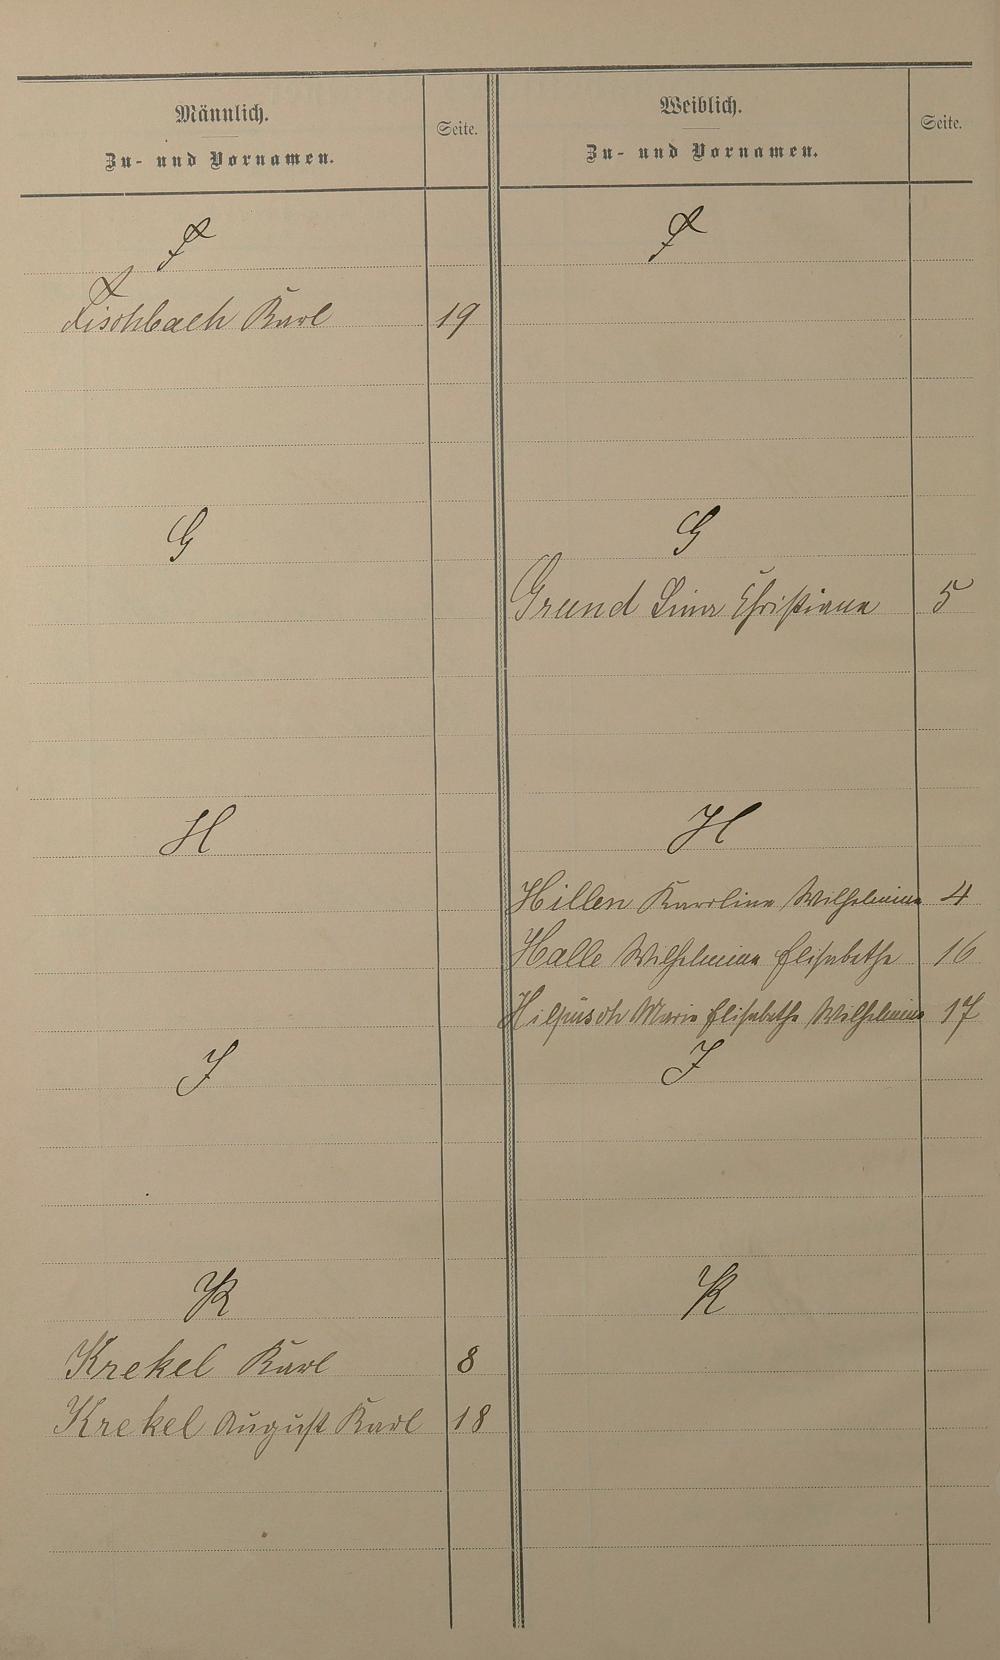 Männlich.
Zu- und Vornamen.
Seite.
Weiblich.
Zu- und Vornamen.
Seite.
F
F
Fischbach Karl 19
G
G
Grund Lina Christiane 5
H
H
Hillen Karoline Wilhelmine 4
Halle Wilhelmine Elisabethe 16
Hilpüsch Marie Elisabethe Wilhelmine 17
J
J
K
K
Krekel Karl 8
Krekel August Karl 18